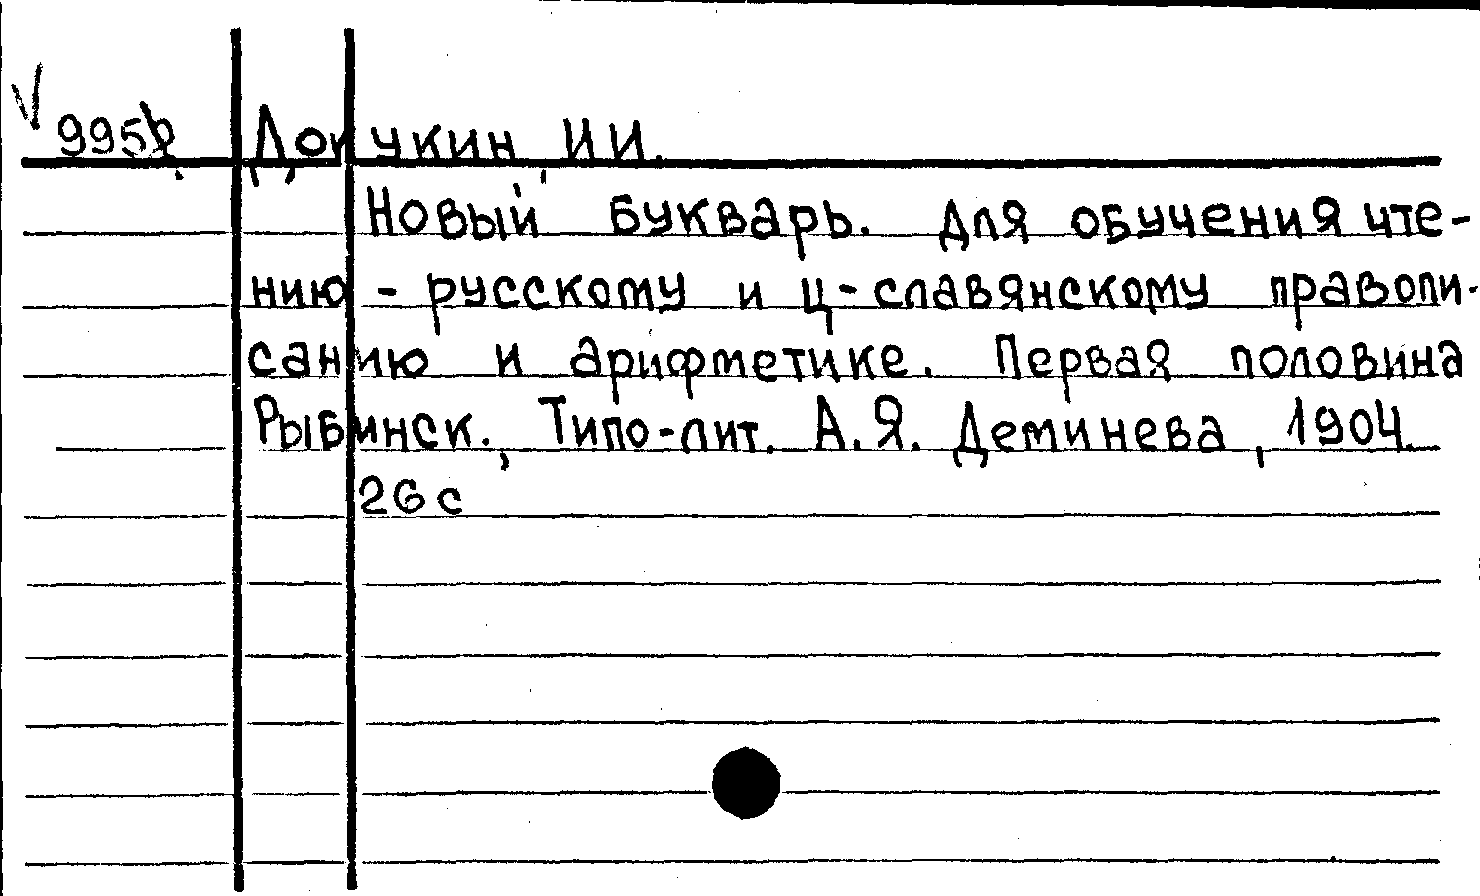 V
995 Докукин И И.
Новый букварь. Для обучения чте-
нию - русскому и ц-славянскому правопи-
санию и арифметике. Первая половина
Рыбинск., Типо-лит. А.Я. Деминева, 1904.
26 с